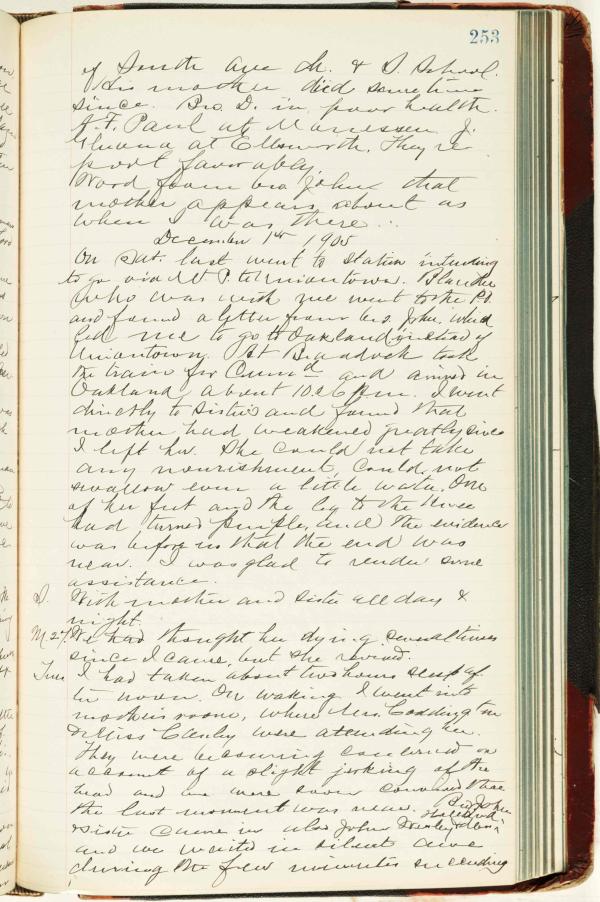 253
of South Ave M. & S. School.
His mother died sometime
since. Bro. D. in poor health.
J. F. Paul at Monessen J.
at Ellsworth. They re
port favorably.
Word from bro John that
mother appears about as
when I was there.
December 1st 1905
On Sat. last went to station intending
to go via Mt P. to Uniontown. Blanche
who was with me went to the P.O.
and found a letter from bro. John which
led me to go to Oakland instead of
Uniontown. At Braddock took
the train for Cumd and arrived in
Oakland about 10.06 P.m. I went
directly to sister's and found that
mother had weakened greatly since
I left her. She could not take
any nourishment, could not
swallow even a little water. One
of her feet and the leg to the knee
had turned purple, and the evidence
was before us that the end was
near. I was glad to render some
assistance.
S. With mother and sister all day &
night.
M 27. We had thought her dying several times
since I came, but she revived.
Tues I had taken about two hours sleep af
ter noon. On waking I went into
mother's room, where Mrs. Coddington
& Miss were attending her.
They were becoming concerned on
account of a slight jerking of the
head and we were soon convinced that
the last moment was near. Bro John
sister came in also John
and we waited in silent awe
during the few minutes succeeding